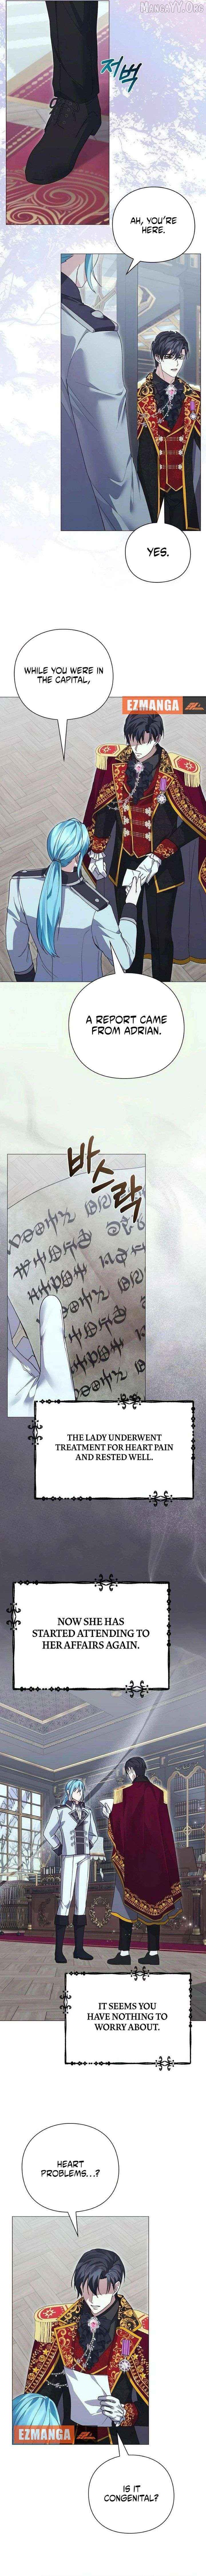 MANGAYY.ORG
저벅
AH, YOU'RE
HERE.
YES.
WHILE YOU WERE IN
THE CAPITAL,
EZMANGA
A REPORT CAME
FROM ADRIAN.
바스락
THE LADY UNDERWENT
TREATMENT FOR HEART PAIN
AND RESTED WELL.
NOW SHE HAS
STARTED ATTENDING TO
HER AFFAIRS AGAIN.
IT SEEMS YOU
HAVE NOTHING TO
WORRY ABOUT.
HEART
PROBLEMS...?
EZMANGA
IS IT
CONGENITAL?